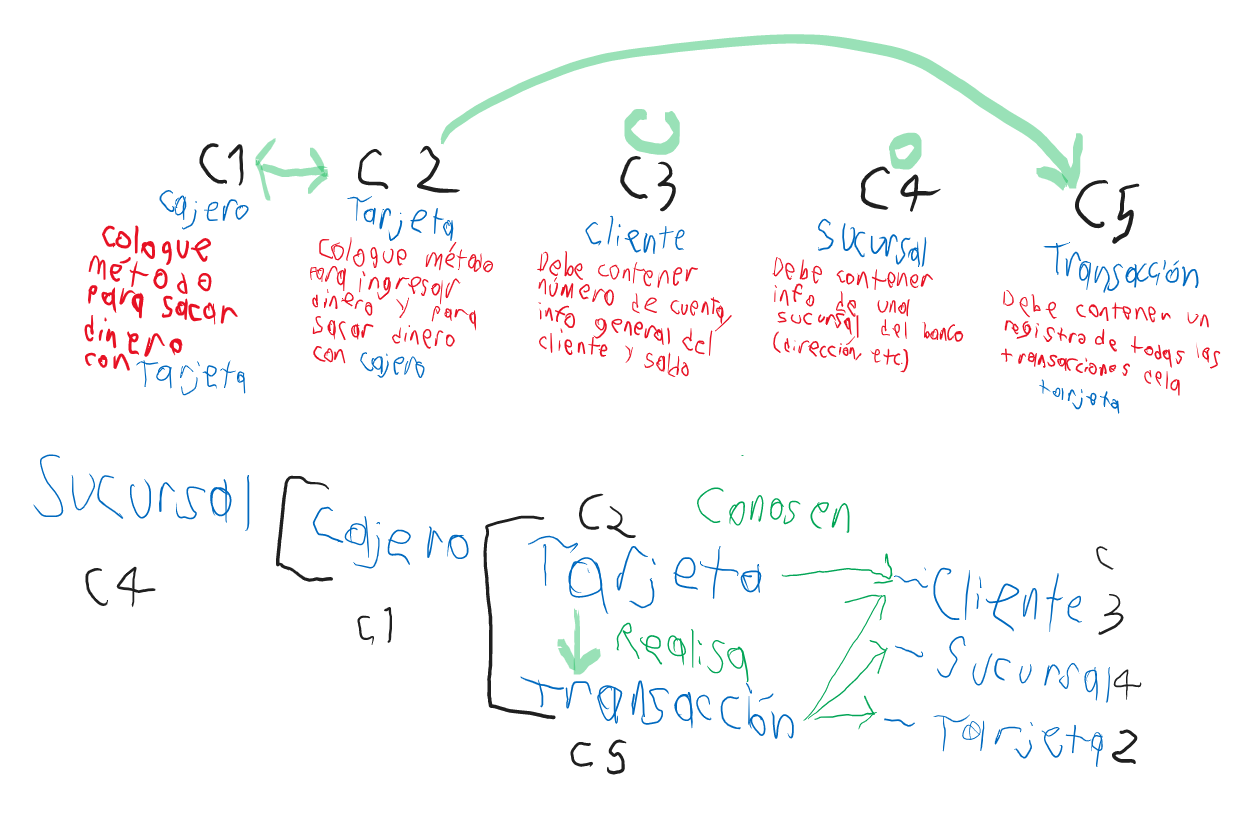 C1
Cajero
Cologue
método
para sacar
dinero
con Tarjeta
C 2
Tarjeta
Cologue método
para ingresar
dinero y para
sacar dinero
con cajero
C3
Cliente
Debe contener
número de cuenta,
info general del
cliente y saldo
C4
Sucursal
Debe contener
info de una
sucursal del banco
(dirección, etc)
C5
Transacción
Debe contener un
registro de todas las
transacciones cela
tarjeta
Sucursal
C4
Cajero
C1
C2
Tarjeta
Realisa
Transacción
C5
Conosen
C
~ Cliente 3
~ Sucursal 4
~ Tarjeta 2